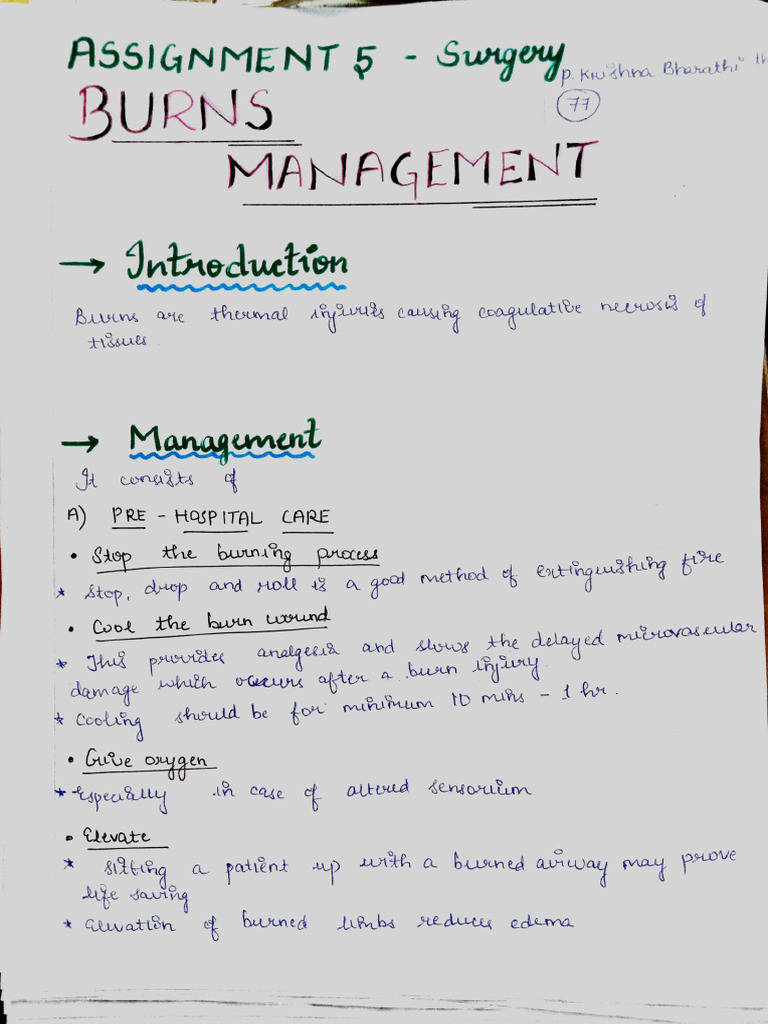 ASSIGNMENT 5 - Surgery
P. Krishna Bharathi
77
BURNS
MANAGEMENT
→ Introduction
Burns are thermal injuries causing coagulative necrosis of
tissues.
→ Management
It consists of
A) PRE - HOSPITAL CARE
• Stop the burning process
* Stop, drop and roll is a good method of extinguishing fire
• Cool the burn wound
* This provides analgesia and slows the delayed microvascular
damage which occurs after a burn injury.
* Cooling should be for minimum 10 mins - 1 hr.
• Give oxygen
* Especially in case of altered sensorium
• Elevate
* Sitting a patient up with a burned airway may prove
life saving
* Elevation of burned limbs reduces edema